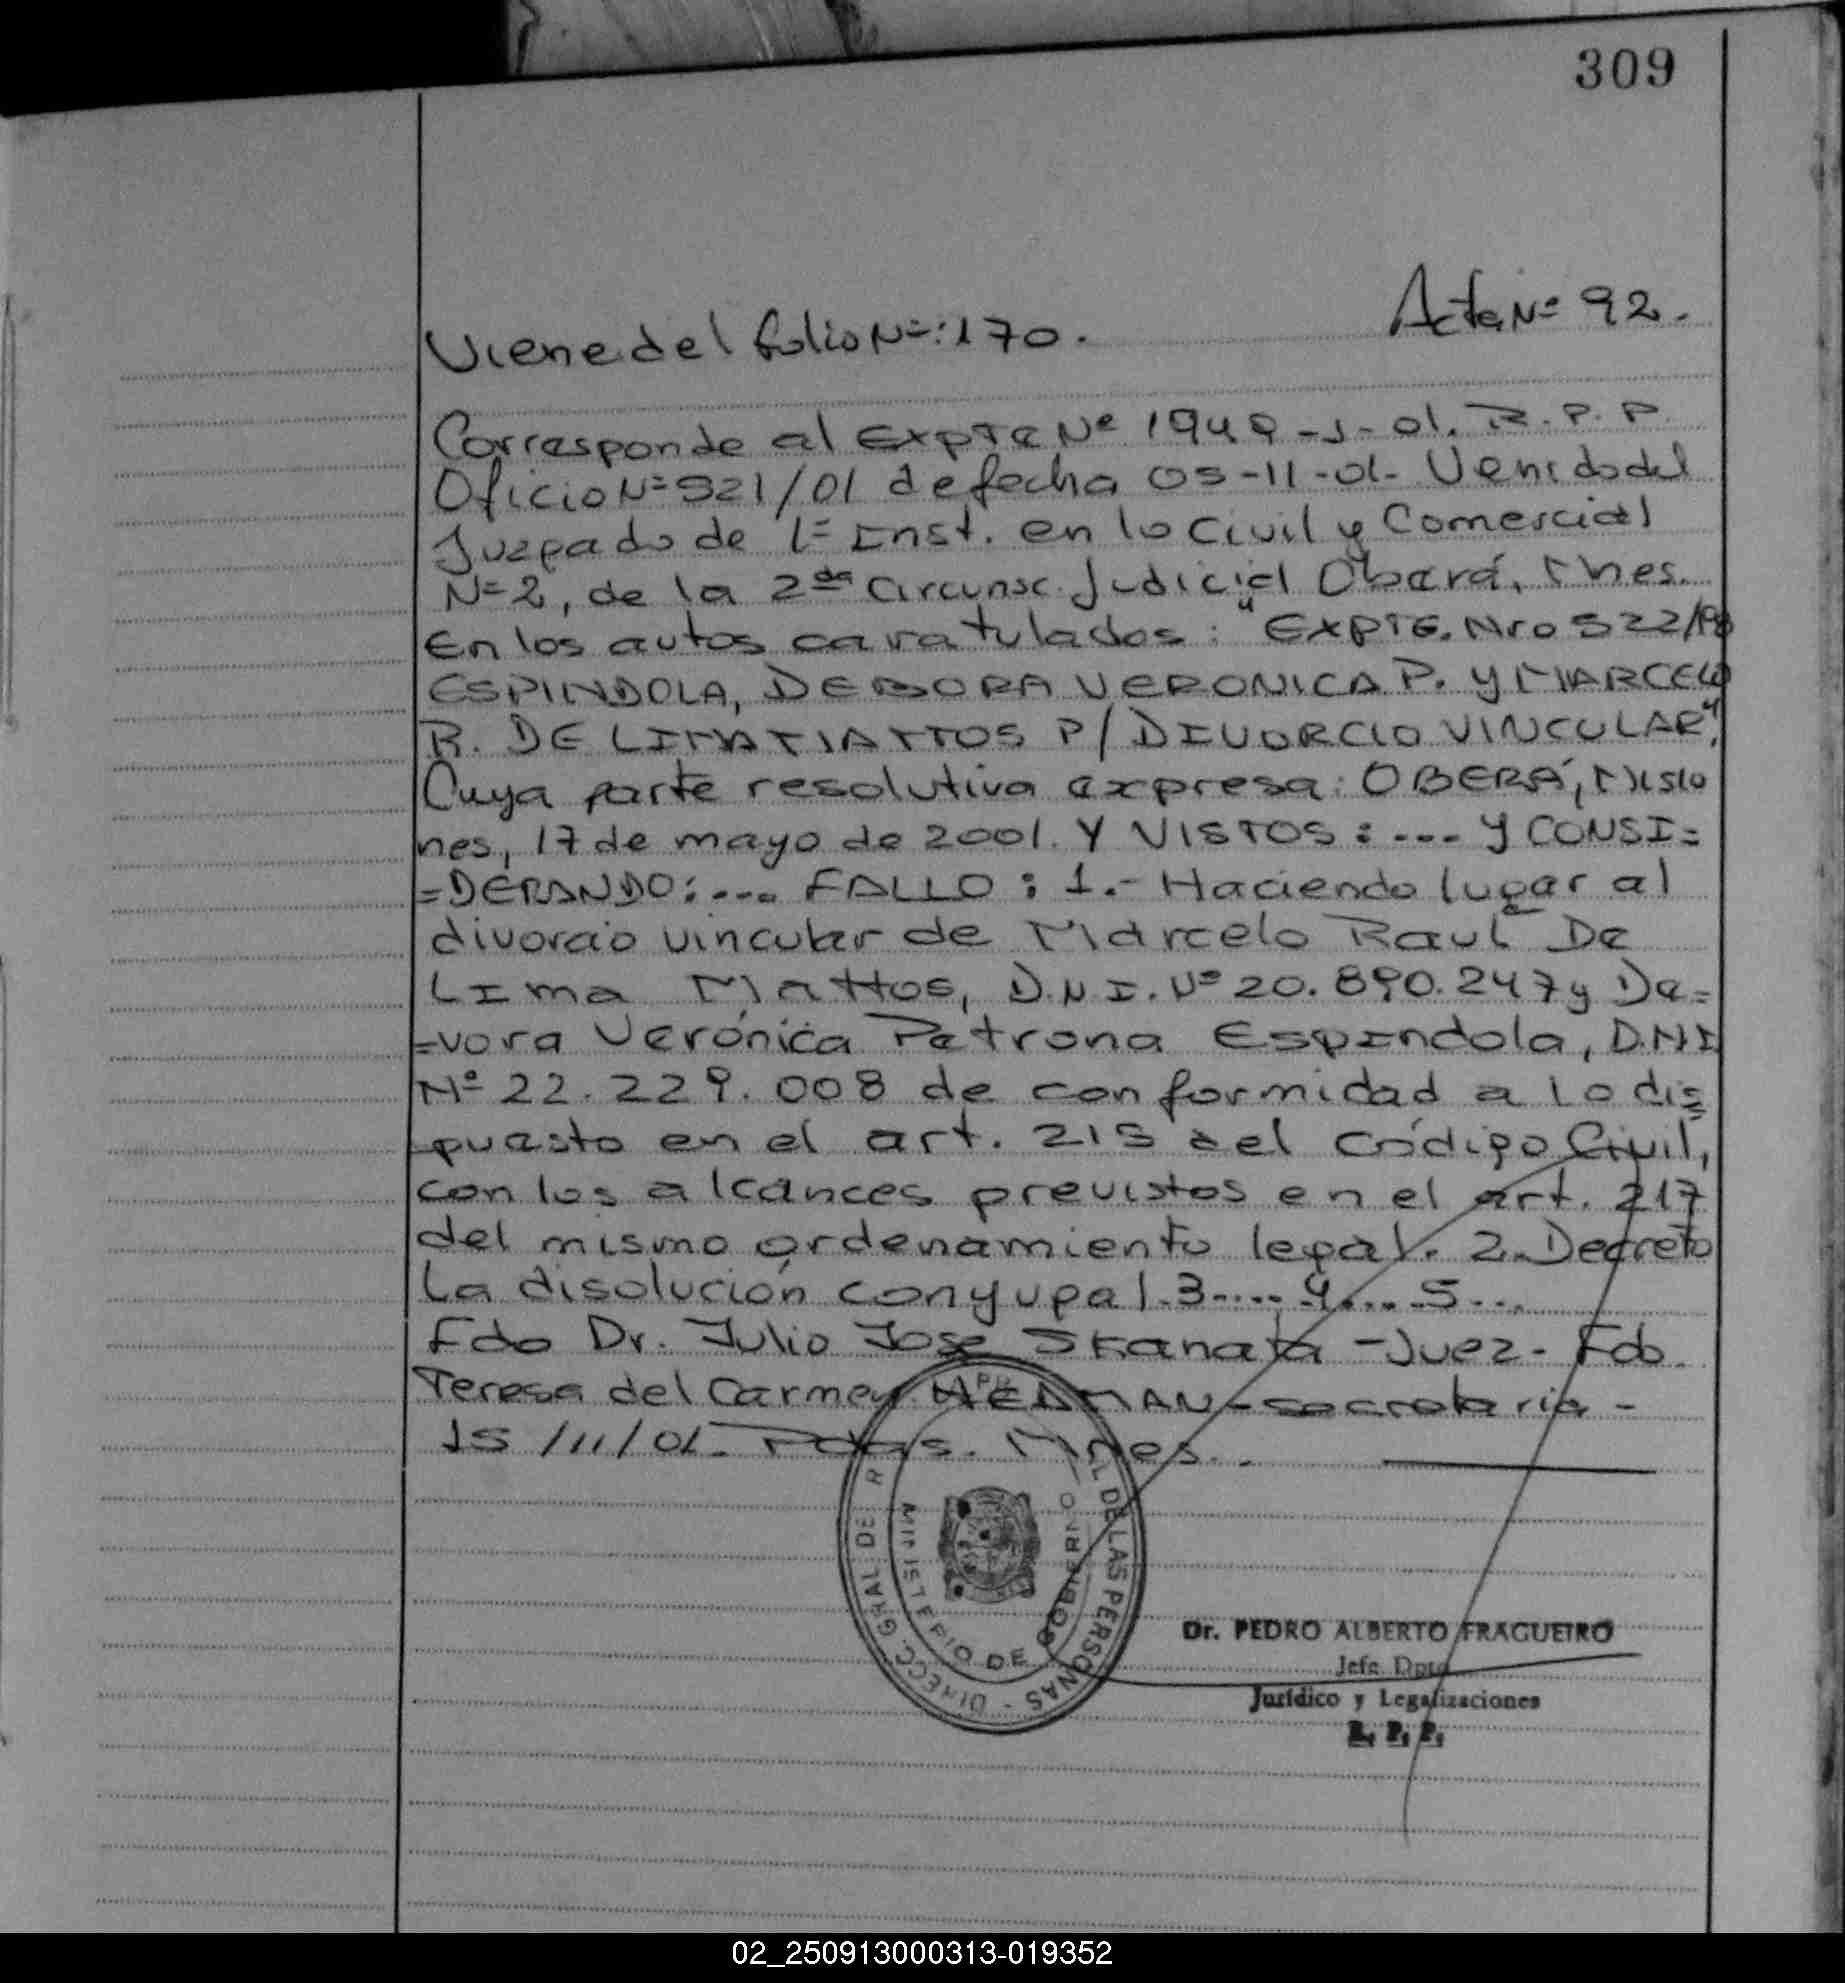 309
Acta Nº 92.
Viene del folio Nº: 170.
Corresponde al Expte Nº 1949-J-01. R.P.P.
Oficio Nº 921/01 de fecha 05-11-01- Venido del
Juzgado de 1º Inst. en lo Civil y Comercial
Nº 2, de la 2da Circunsc. Judicial Oberá, Mnes.
En los autos caratulados: "EXPTE. Nro 522/98
ESPINDOLA, DEBORA VERONICA P. y MARCELO
R. DE LIMA MATTOS P/ DIVORCIO VINCULAR",
Cuya parte resolutiva expresa: OBERÁ, Misio
nes, 17 de mayo de 2001. Y VISTOS: .... y CONSI=
=DERANDO: .... FALLO: 1.- Haciendo lugar al
divorcio vincular de Marcelo Raul De
Lima Mattos, D.N.I. Nº 20.890.247 y De=
=vora Verónica Petrona Espindola, D.N.I
Nº 22.229.008 de conformidad a lo dis=
puesto en el art. 215 del Código Civil,
con los alcances previstos en el art. 217
del mismo ordenamiento legal. 2. Decreto
La disolución conyugal. 3..... 4.... 5...
Fdo Dr. Julio Jose Skanata - Juez - Fdo.
Teresa del Carmen HEDMAN - secretaria -
15/11/01. Pdas. Mnes..
DIRECC. GRAL. DE R DE LAS PERSONAS -
MINISTERIO DE GOBIERNO
Dr. PEDRO ALBERTO FRAGUEIRO
Jefe Dpto
Jurídico y Legalizaciones
R. P. P.
02_250913000313-019352